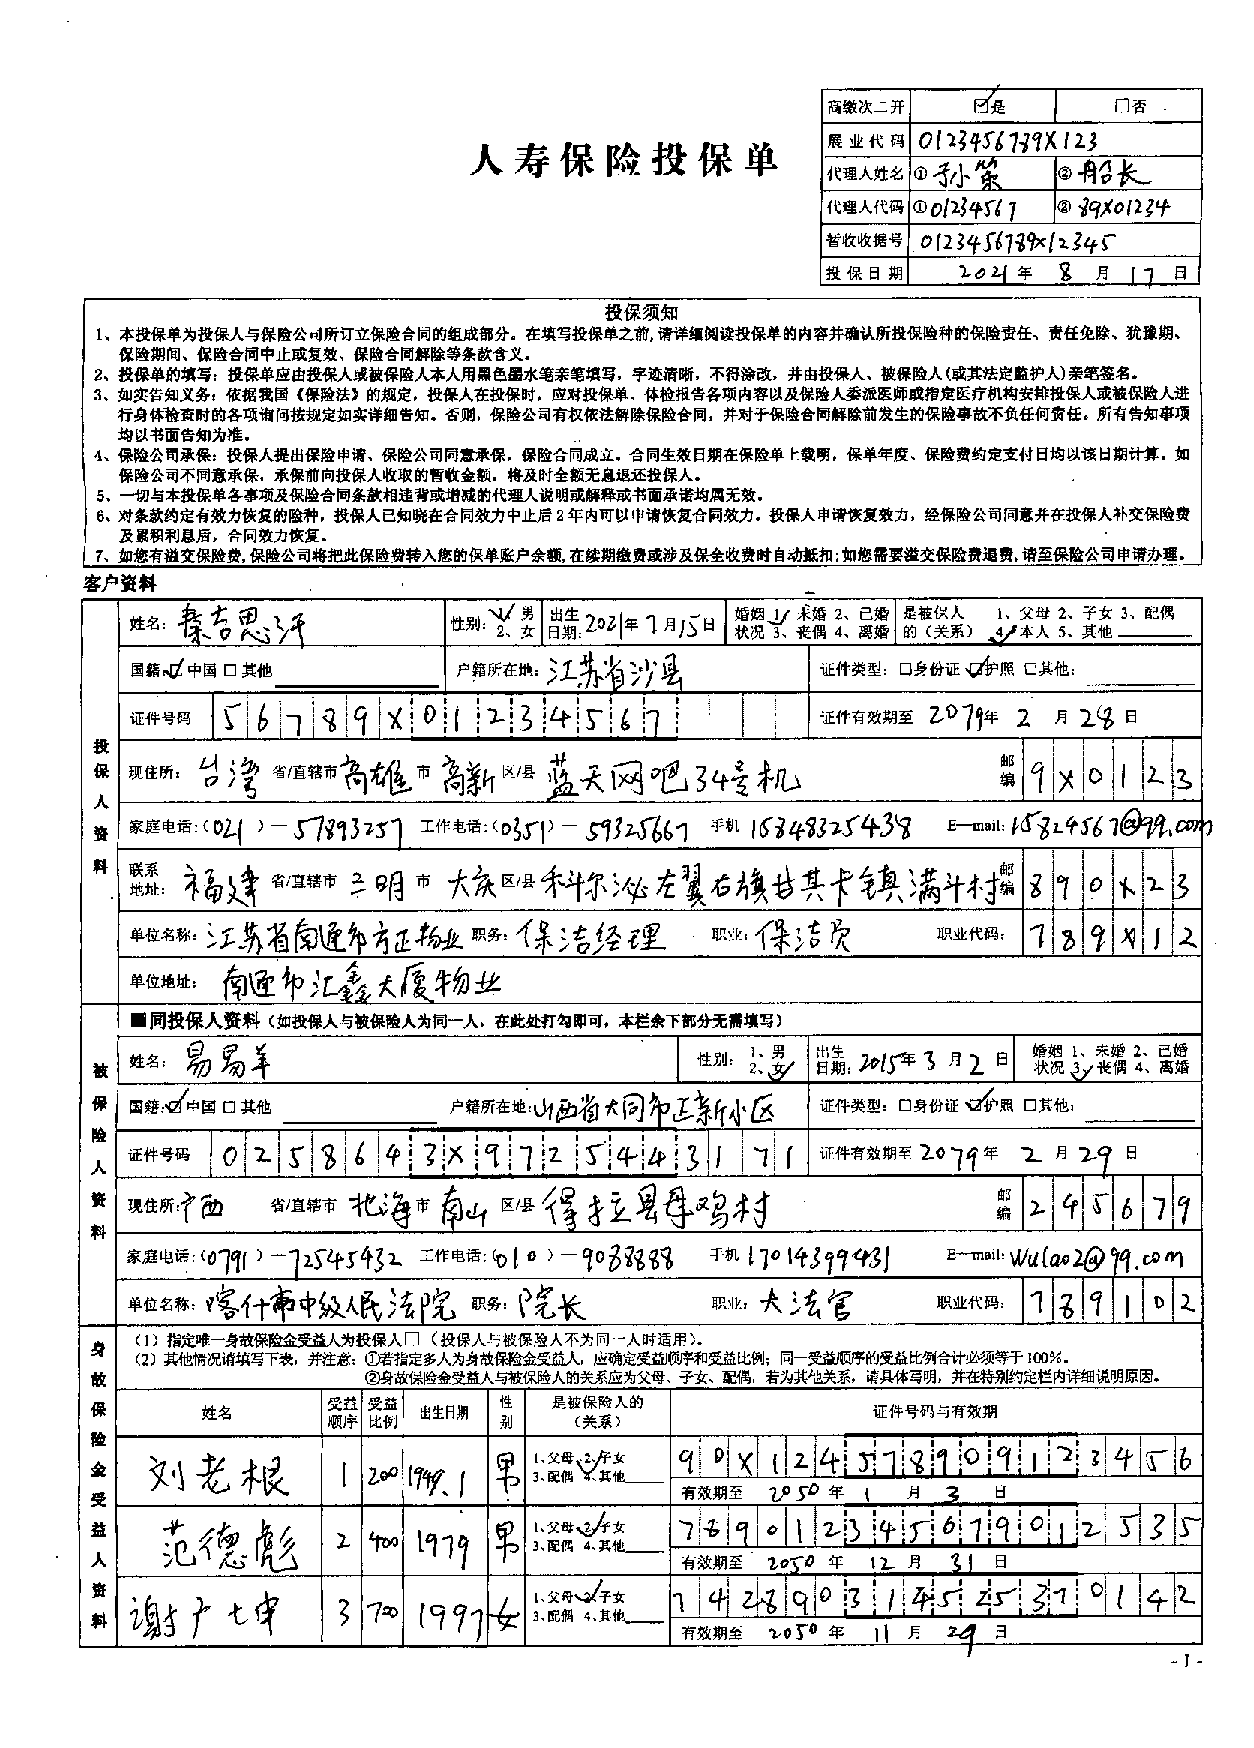 高缴次二开 ☑是 □否
展业代码 0123456789X123
人寿保险投保单
代理人姓名 ①孙小策 ②船长
代理人代码 ①01234567 ②89X01234
暂收收据号 0123456789X12345
投保日期 2021年 8月 17日
投保须知
1、本投保单为投保人与保险公司所订立保险合同的组成部分。在填写投保单之前,请详细阅读投保单的内容并确认所投保险种的保险责任、责任免除、犹豫期、
保险期间、保险合同中止或复效、保险合同解除等条款含义。
2、投保单的填写：投保单应由投保人或被保险人本人用黑色墨水笔亲笔填写，字迹清晰，不得涂改，并由投保人、被保险人(或其法定监护人)亲笔签名。
3、如实告知义务：依据我国《保险法》的规定，投保人在投保时，应对投保单、体检报告各项内容以及保险人委派医师或指定医疗机构安排投保人或被保险人进
行身体检查时的各项询问按规定如实详细告知。否则，保险公司有权依法解除保险合同，并对于保险合同解除前发生的保险事故不负任何责任。所有告知事项
均以书面告知为准。
4、保险公司承保：投保人提出保险申请、保险公司同意承保，保险合同成立。合同生效日期在保险单上载明，保单年度、保险费约定支付日均以该日期计算。如
保险公司不同意承保，承保前向投保人收取的暂收金额，将及时全额无息退还投保人。
5、一切与本投保单各事项及保险合同条款相违背或增减的代理人说明或解释或书面承诺均属无效。
6、对条款约定有效力恢复的险种，投保人已知晓在合同效力中止后2年内可以申请恢复合同效力。投保人申请恢复效力，经保险公司同意并在投保人补交保险费
及累积利息后，合同效力恢复。
7、如您有溢交保险费,保险公司将把此保险费转入您的保单账户余额,在续期缴费或涉及保全收费时自动抵扣;如您需要溢交保险费退费,请至保险公司申请办理。
客户资料
投保人资料
姓名：秦吉思汗 性别：1、男 2、女 出生日期：2021年7月15日 婚姻状况 1、未婚 2、已婚 3、丧偶 4、离婚 是被保人的（关系） 1、父母 2、子女 3、配偶 4、本人 5、其他
国籍☑中国 □其他 户籍所在地：江苏省沙县 证件类型：□身份证 ☑护照 □其他：
证件号码 56789X01234567 证件有效期至 2079年 2月 28日
现住所：台湾 省/直辖市 高雄 市 高新 区/县 蓝天网吧34号机 邮编 9X0123
家庭电话：（021）－57893257 工作电话：（0351）－59325667 手机 15848325438 E－mail：15824567@qq.com
联系地址：福建 省/直辖市 三明 市 大庆 区/县 科尔泌左翼右旗甘其卡镇满斗村 邮编 890X23
单位名称：江苏省南通市方正物业 职务：保洁经理 职业：保洁员 职业代码：789X12
单位地址：南通市汇鑫大厦物业
被保险人资料
■同投保人资料（如投保人与被保险人为同一人，在此处打勾即可，本栏余下部分无需填写）
姓名：易易羊 性别：1、男 2、女 出生日期：2015年3月2日 婚姻状况 1、未婚 2、已婚 3、丧偶 4、离婚
国籍：☑中国 □其他 户籍所在地：山西省大同市正新小区 证件类型：□身份证 ☑护照 □其他：
证件号码 0258643X9725443171 证件有效期至 2079年 2月 29日
现住所：广西 省/直辖市 北海 市 南山 区/县 得拉县母鸡村 邮编 245679
家庭电话：（0791）－72545432 工作电话：（010）－9088888 手机 17014399431 E－mail：wulao2@qq.com
单位名称：喀什市中级人民法院 职务：院长 职业：大法官 职业代码：789102
身故保险金受益人资料
（1）指定唯一身故保险金受益人为投保人□（投保人与被保险人不为同一人时适用）。
（2）其他情况请填写下表，并注意：①若指定多人为身故保险金受益人，应确定受益顺序和受益比例；同一受益顺序的受益比例合计必须等于100%。
②身故保险金受益人与被保险人的关系应为父母、子女、配偶，若为其他关系，请具体写明，并在特别约定栏内详细说明原因。
姓名 受益顺序 受益比例 出生日期 性别 是被保险人的（关系） 证件号码与有效期
刘老根 1 200 1949.1 男 1、父母 2、子女 3、配偶 4、其他 90X124578909123456
有效期至 2050年 1月 3日
范德彪 2 400 1979 男 1、父母 2、子女 3、配偶 4、其他 789012345679012535
有效期至 2050年 12月 31日
谢广七申 3 700 1997 女 1、父母 2、子女 3、配偶 4、其他 742890314525370142
有效期至 2050年 11月 29日
- 1 -